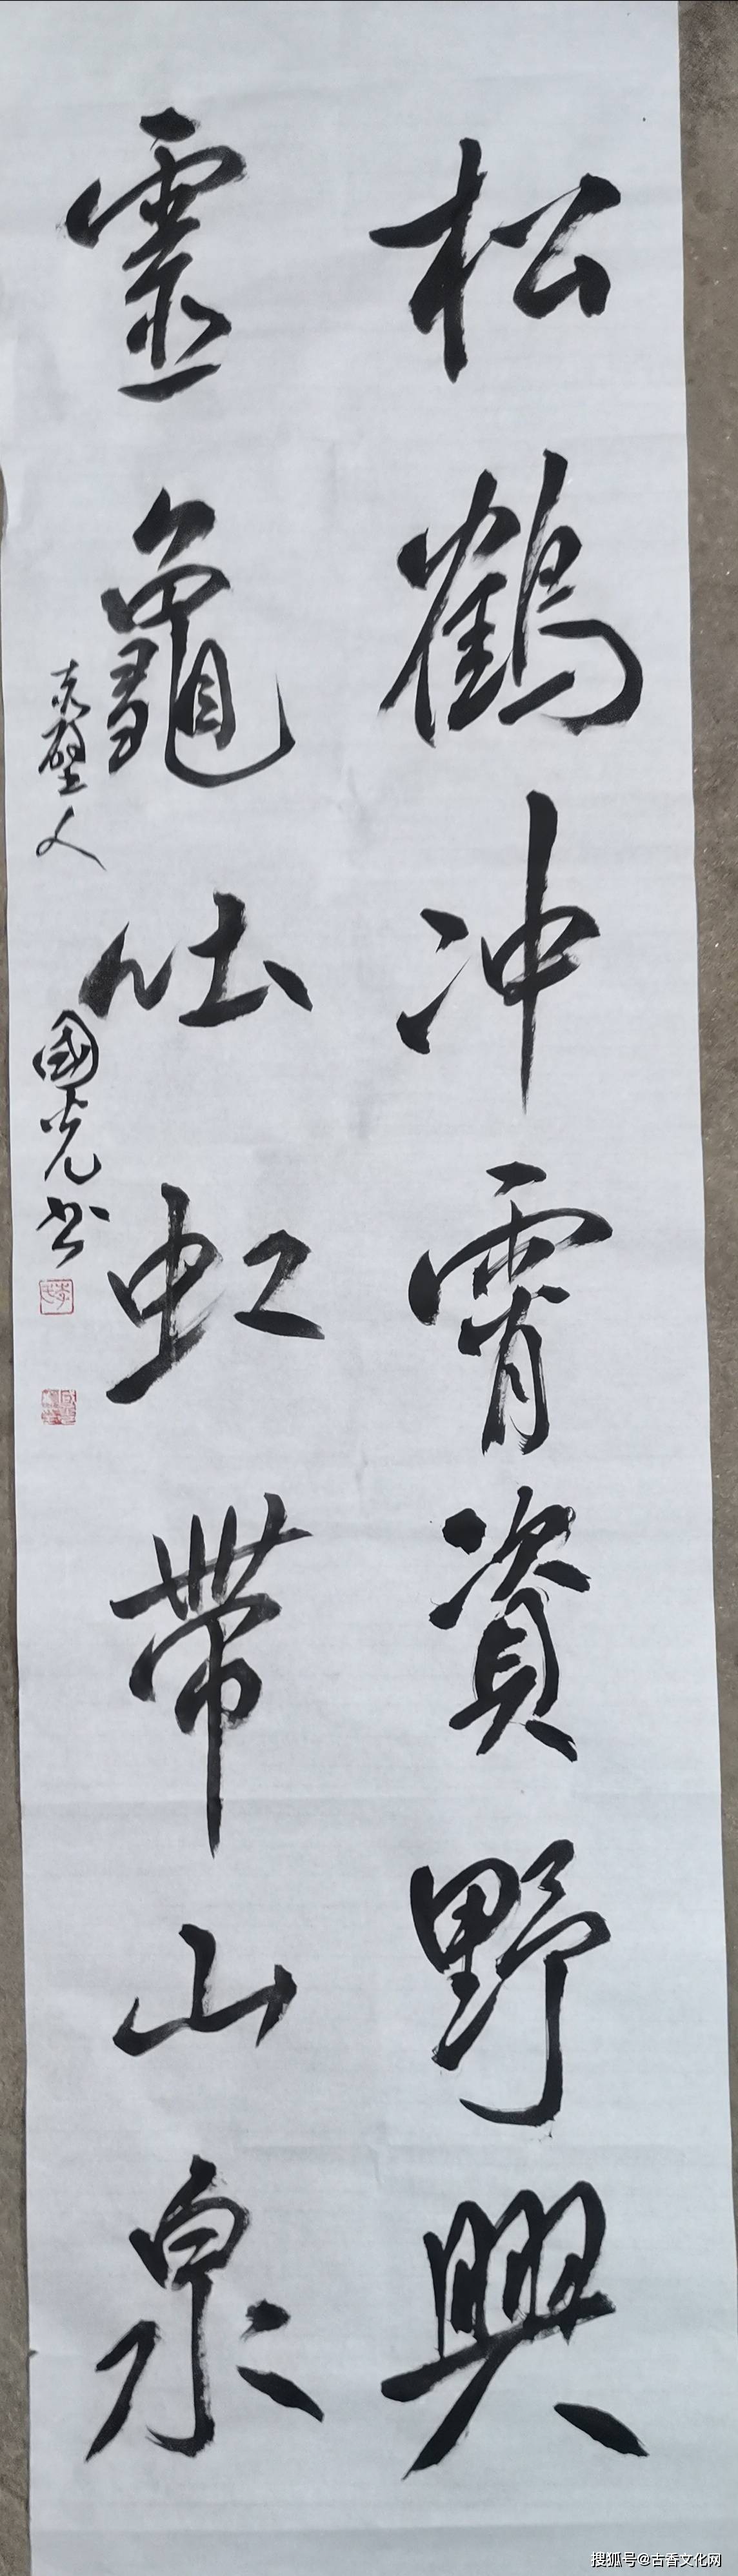 松鶴冲霄資野興
靈龜吐虹帶山泉
克壁人 國光书
搜狐号@古香文化网